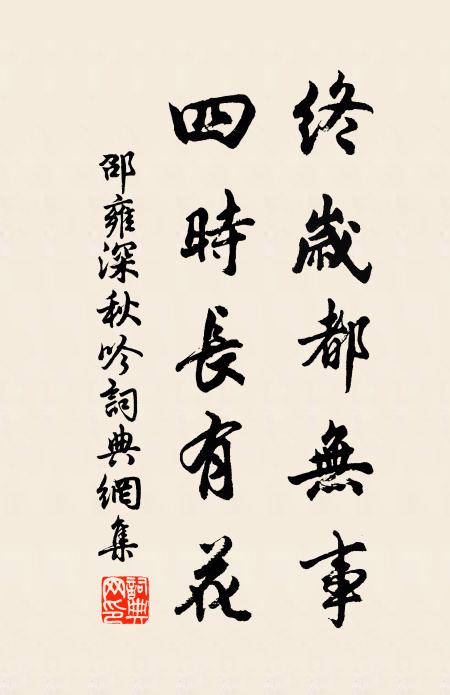 終歲都無事
四時長有花
邵雍深秋吟詞典網集
詞典網印